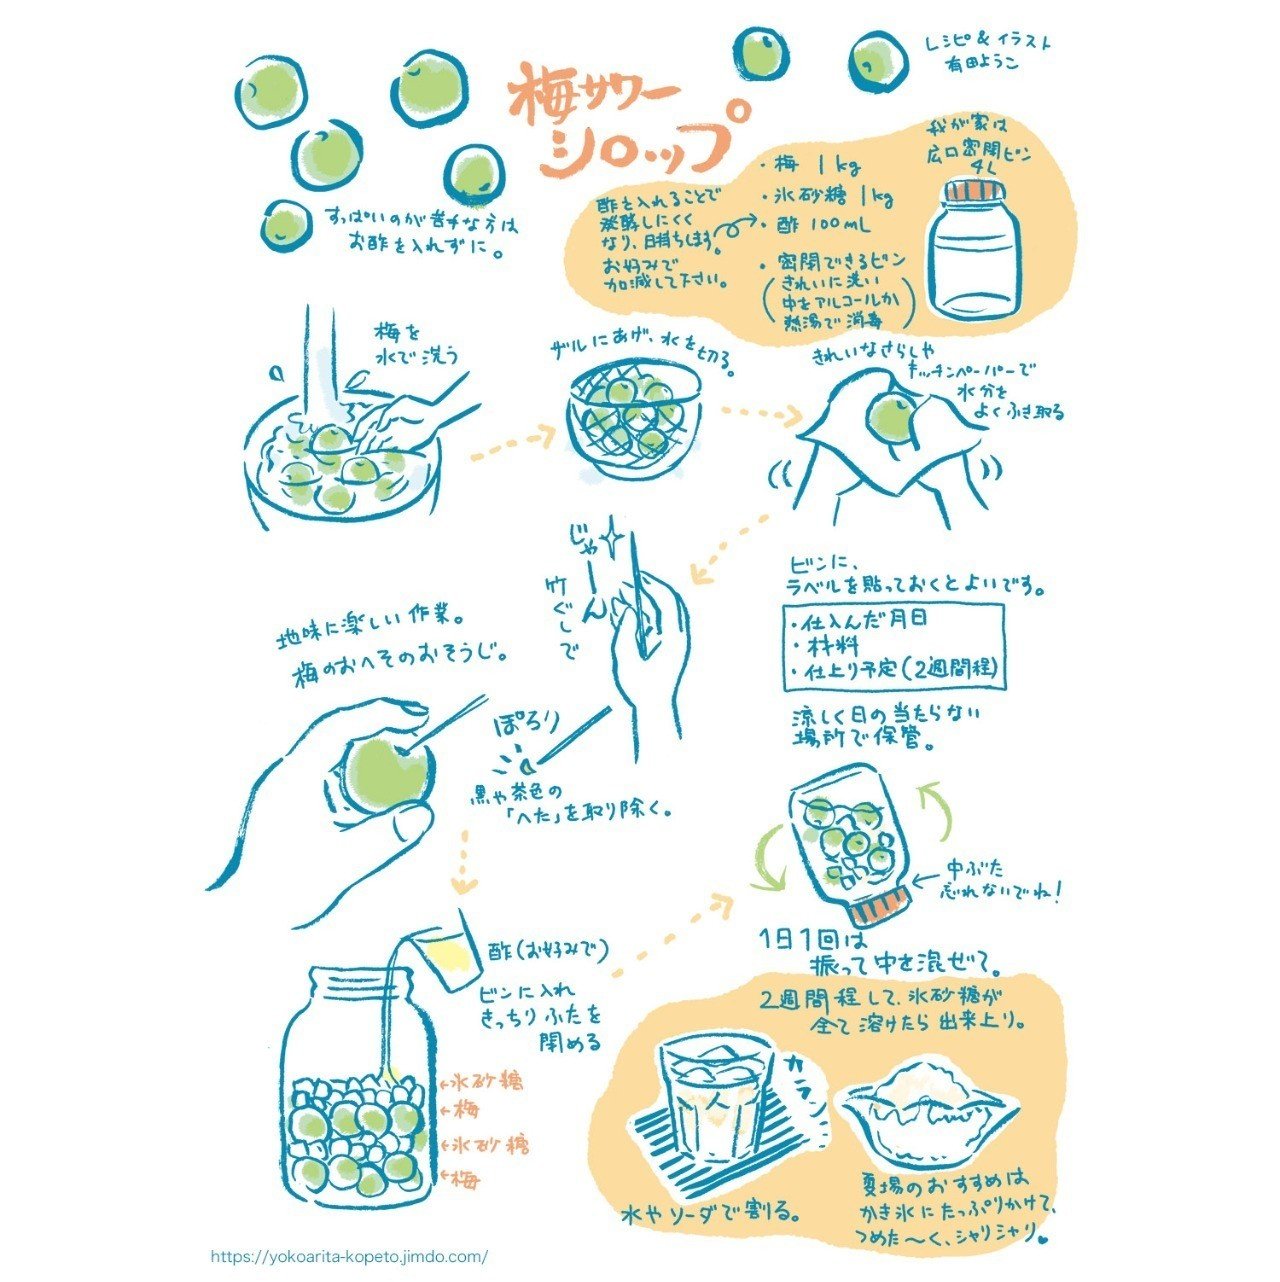 レシピ&イラスト
有田ようこ
梅サワー
シロップ
すっぱいのが苦手な方は
お酢を入れずに。
・梅 1kg
・氷砂糖 1kg
・酢 100mL
・密閉できるビン
(きれいに洗い
中をアルコールか
熱湯で消毒)
酢を入れることで
発酵しにくく
なり、日持ちします。
お好みで
加減して下さい。
我が家は
広口密閉ビン
4L
梅を
水で洗う
ザルにあげ、水を切る。
きれいなさらしや
キッチンペーパーで
水分を
よくふき取る
じゃーん
竹ぐしで
地味に楽しい作業。
梅のおへそのおそうじ。
ぽろり
黒や茶色の
「へた」を取り除く。
酢(お好みで)
ビンに入れ
きっちりふたを
閉める
←氷砂糖
←梅
←氷砂糖
←梅
ビンに、
ラベルを貼っておくとよいです。
・仕込んだ月日
・材料
・仕上り予定(2週間程)
涼しく日の当たらない
場所で保管。
中ぶた
忘れないでね!
1日1回は
振って中を混ぜて。
2週間程して、氷砂糖が
全て溶けたら出来上り。
カラン
水やソーダで割る。
夏場のおすすめは
かき氷にたっぷりかけて、
つめた〜く、シャリシャリ♥
https://yokoarita-kopeto.jimdo.com/